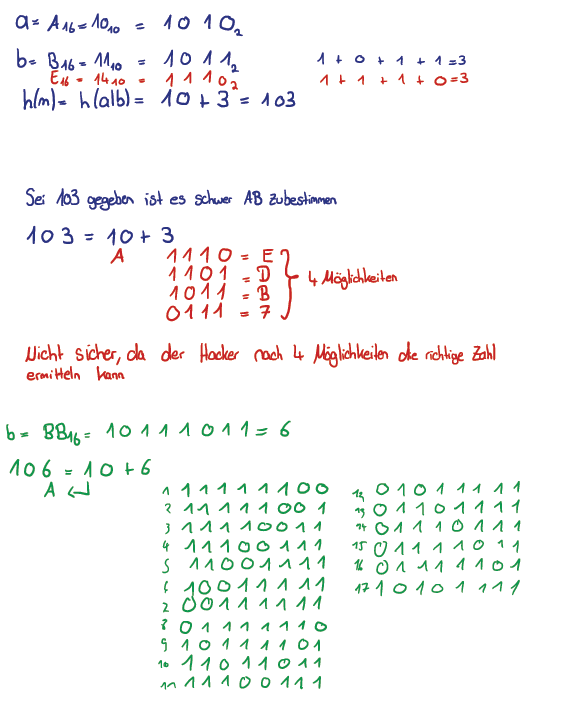 a = A16 = 10 10 = 1 0 1 0 2
b = B16 = 11 10 = 1 0 1 1 2 1 + 0 + 1 + 1 = 3
E16 = 14 10 = 1 1 1 0 2 1 + 1 + 1 + 0 = 3
h(m) = h(a|b) = 10 + 3 = 103
Sei 103 gegeben ist es schwer AB zubestimmen
103 = 10 + 3
A 1 1 1 0 = E
1 1 0 1 = D
4 Möglichkeiten
1 0 1 1 = B
0 1 1 1 = 7
Nicht sicher, da der Hacker nach 4 Möglichkeiten die richtige Zahl
ermitteln kann
b = BB16 = 1 0 1 1 1 0 1 1 = 6
106 = 10 + 6
A
1 1 1 1 1 1 1 0 0
2 1 1 1 1 1 0 0 1
3 1 1 1 1 0 0 1 1
4 1 1 1 0 0 1 1 1
5 1 1 0 0 1 1 1 1
6 1 0 0 1 1 1 1 1
0 0 1 1 1 1 1 1
8 0 1 1 1 1 1 1 0
9 1 0 1 1 1 1 0 1
10 1 1 0 1 1 0 1 1
11 1 1 1 0 0 1 1 1
12 0 1 0 1 1 1 1 1
13 0 1 1 0 1 1 1 1
14 0 1 1 1 0 1 1 1
15 0 1 1 1 1 0 1 1
16 0 1 1 1 1 1 0 1
17 1 0 1 0 1 1 1 1